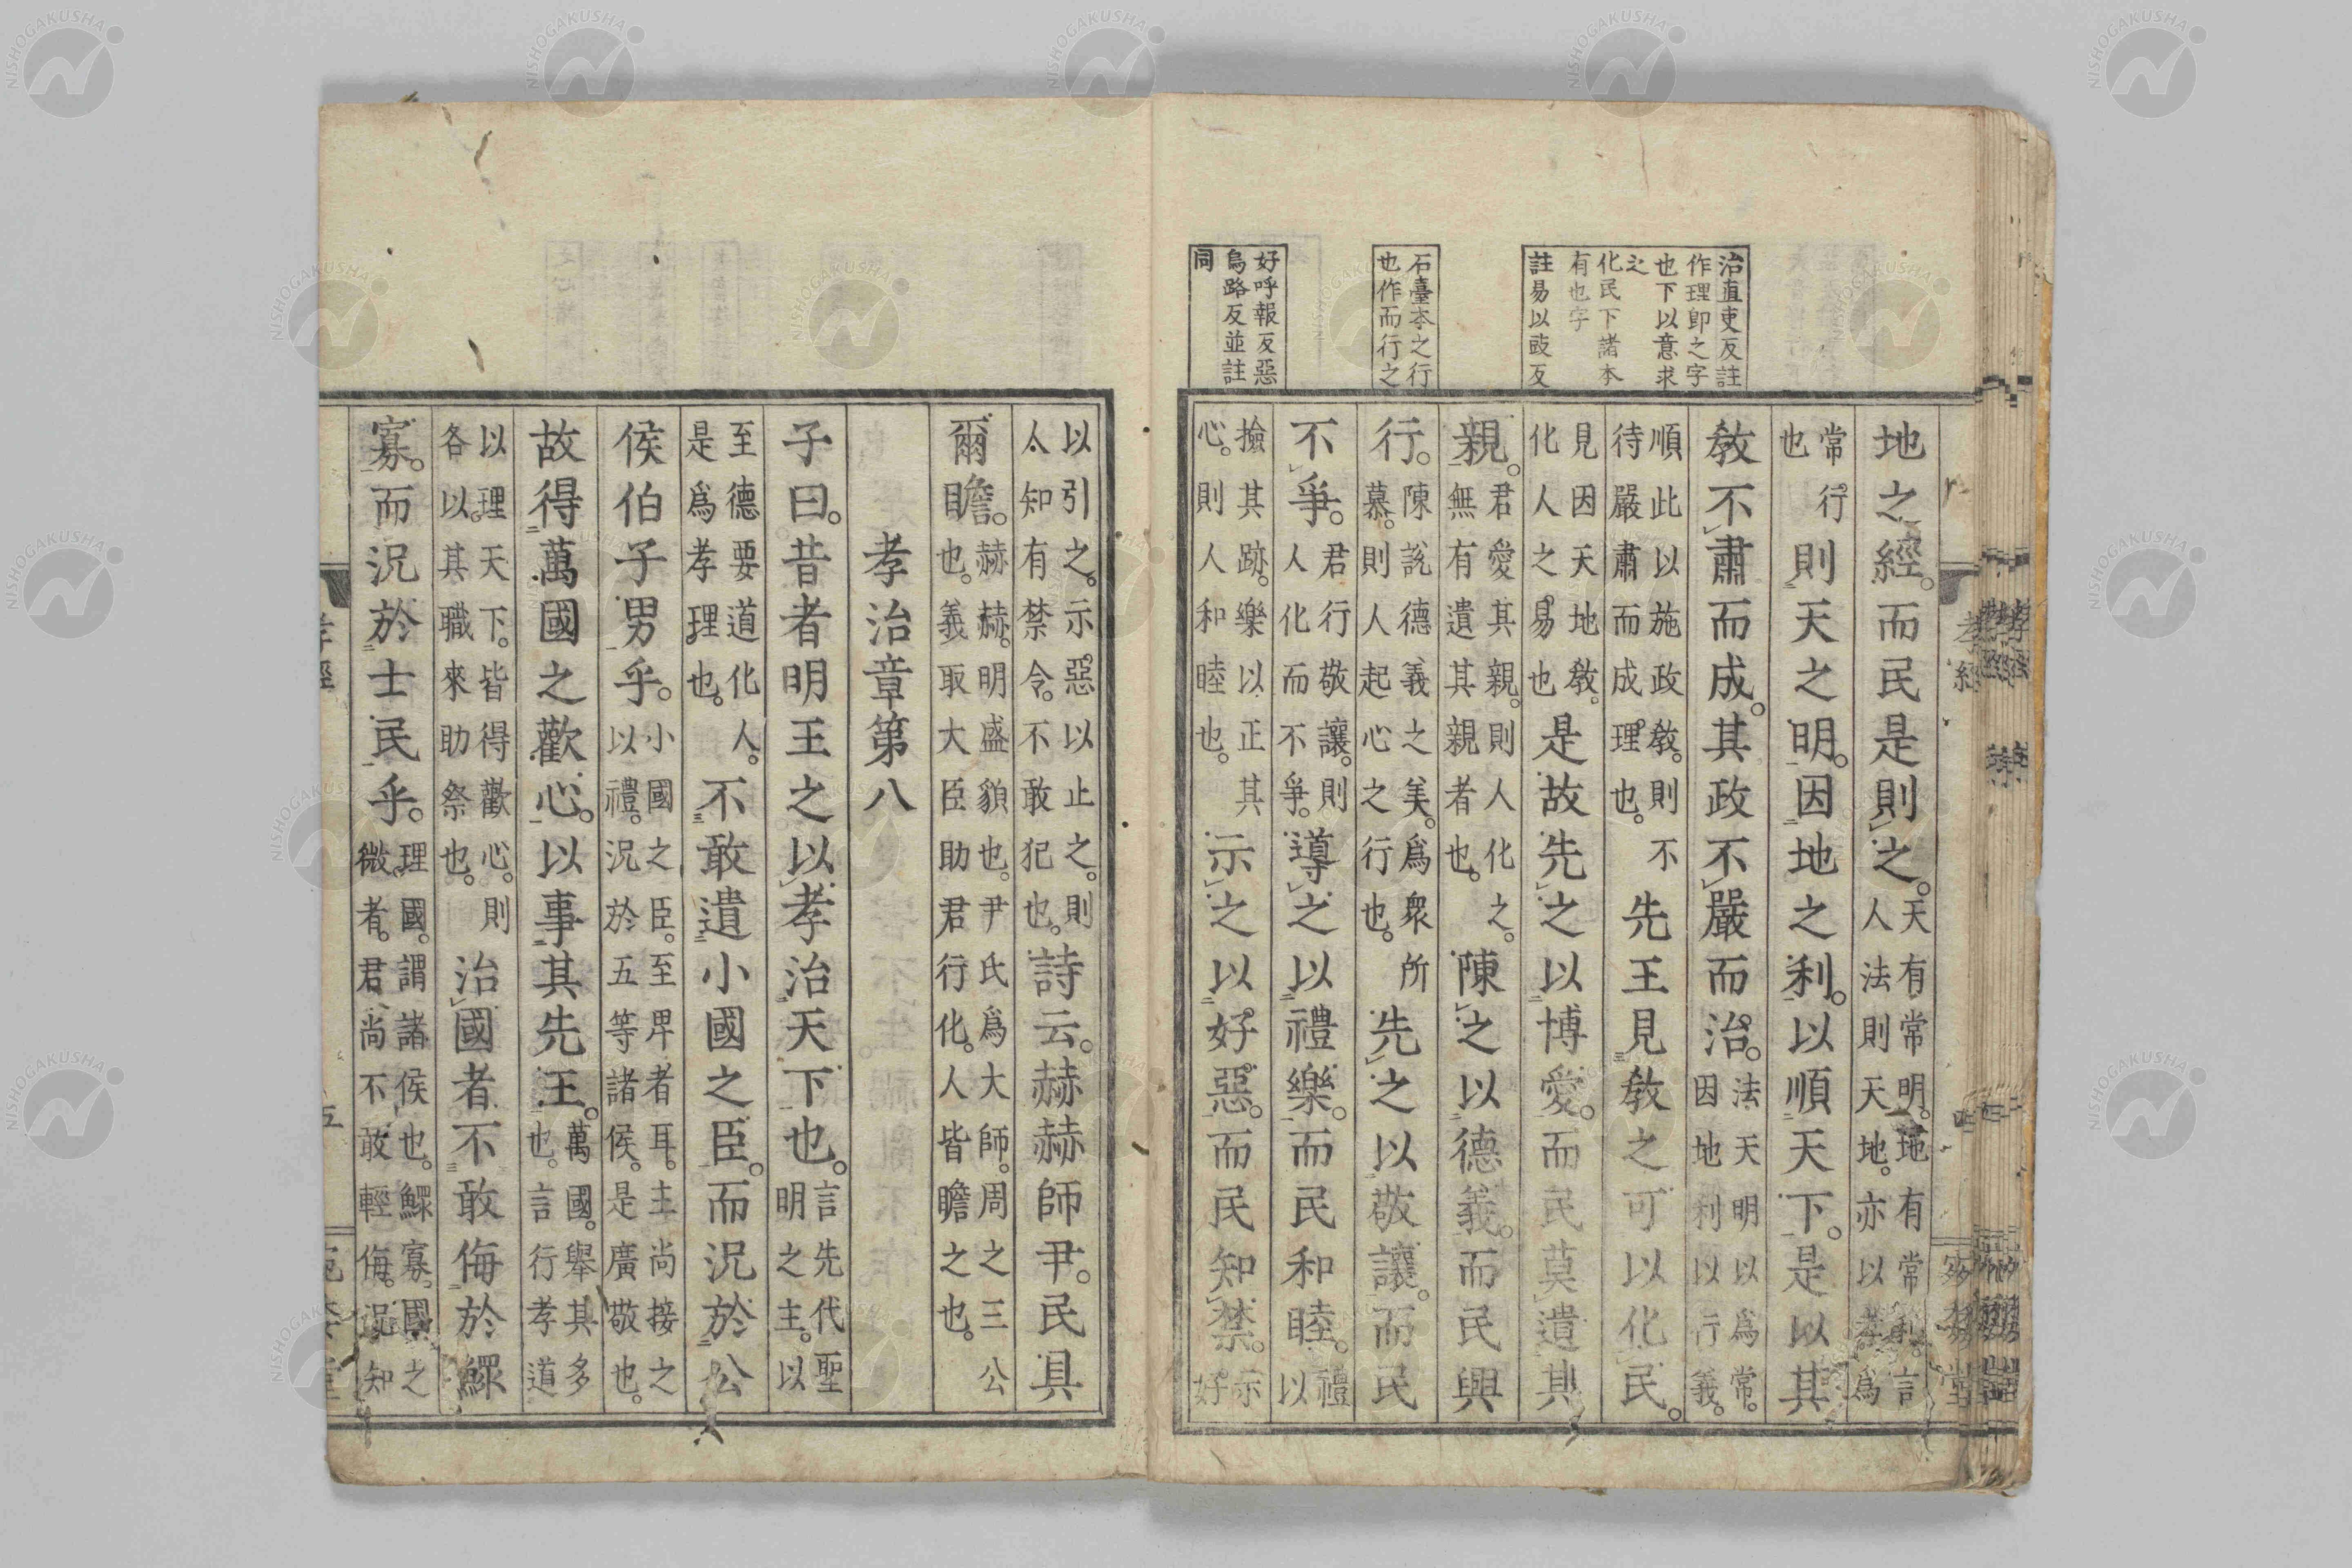 治直吏反註
作理卽之字
也下以意求
之
化民下諸本
有也字
註易以豉反
石臺本之行
也作而行之
好呼報反惡
烏路反並註
同
地之經。而民是則之。天有常明。地有常利。言人法則天地。亦以孝爲
常行也則天之明。因地之利。以順天下。是以其
敎不肅而成。其政不嚴而治。法天明以爲常。因地利以行義。
順此以施政敎。則不待嚴肅而成理也。先王見敎之可以化民。
見因天地敎。化人之易也是故先之以博愛。而民莫遺其
親。君愛其親。則人化之。無有遺其親者也。陳之以德義。而民興
行。陳說德義之美。爲衆所慕。則人起心之行也。先之以敬讓。而民
不爭。君行敬讓。則人化而不爭。導之以禮樂。而民和睦。禮以
撿其跡。樂以正其心。則人和睦也。示之以好惡。而民知禁。示好
以引之。示惡以止之。則人知有禁令。不敢犯也。詩云。赫赫師尹。民具
爾瞻。赫赫。明盛貌也。尹氏爲大師。周之三公也。義取大臣助君行化。人皆瞻之也。
孝治章第八
子曰。昔者明王之以孝治天下也。言先代聖明之主。以
至德要道化人。是爲孝理也。不敢遺小國之臣。而況於公
侯伯子男乎。小國之臣。至卑者耳。主尚接之以禮。況於五等諸侯。是廣敬也。
故得萬國之歡心。以事其先王。萬國。舉其多也。言行孝道
以理天下。皆得歡心。則各以其職來助祭也。治國者不敢侮於鰥
寡。而況於士民乎。理國。謂諸侯也。鰥寡。國之微者。君尚不敢輕侮。況知